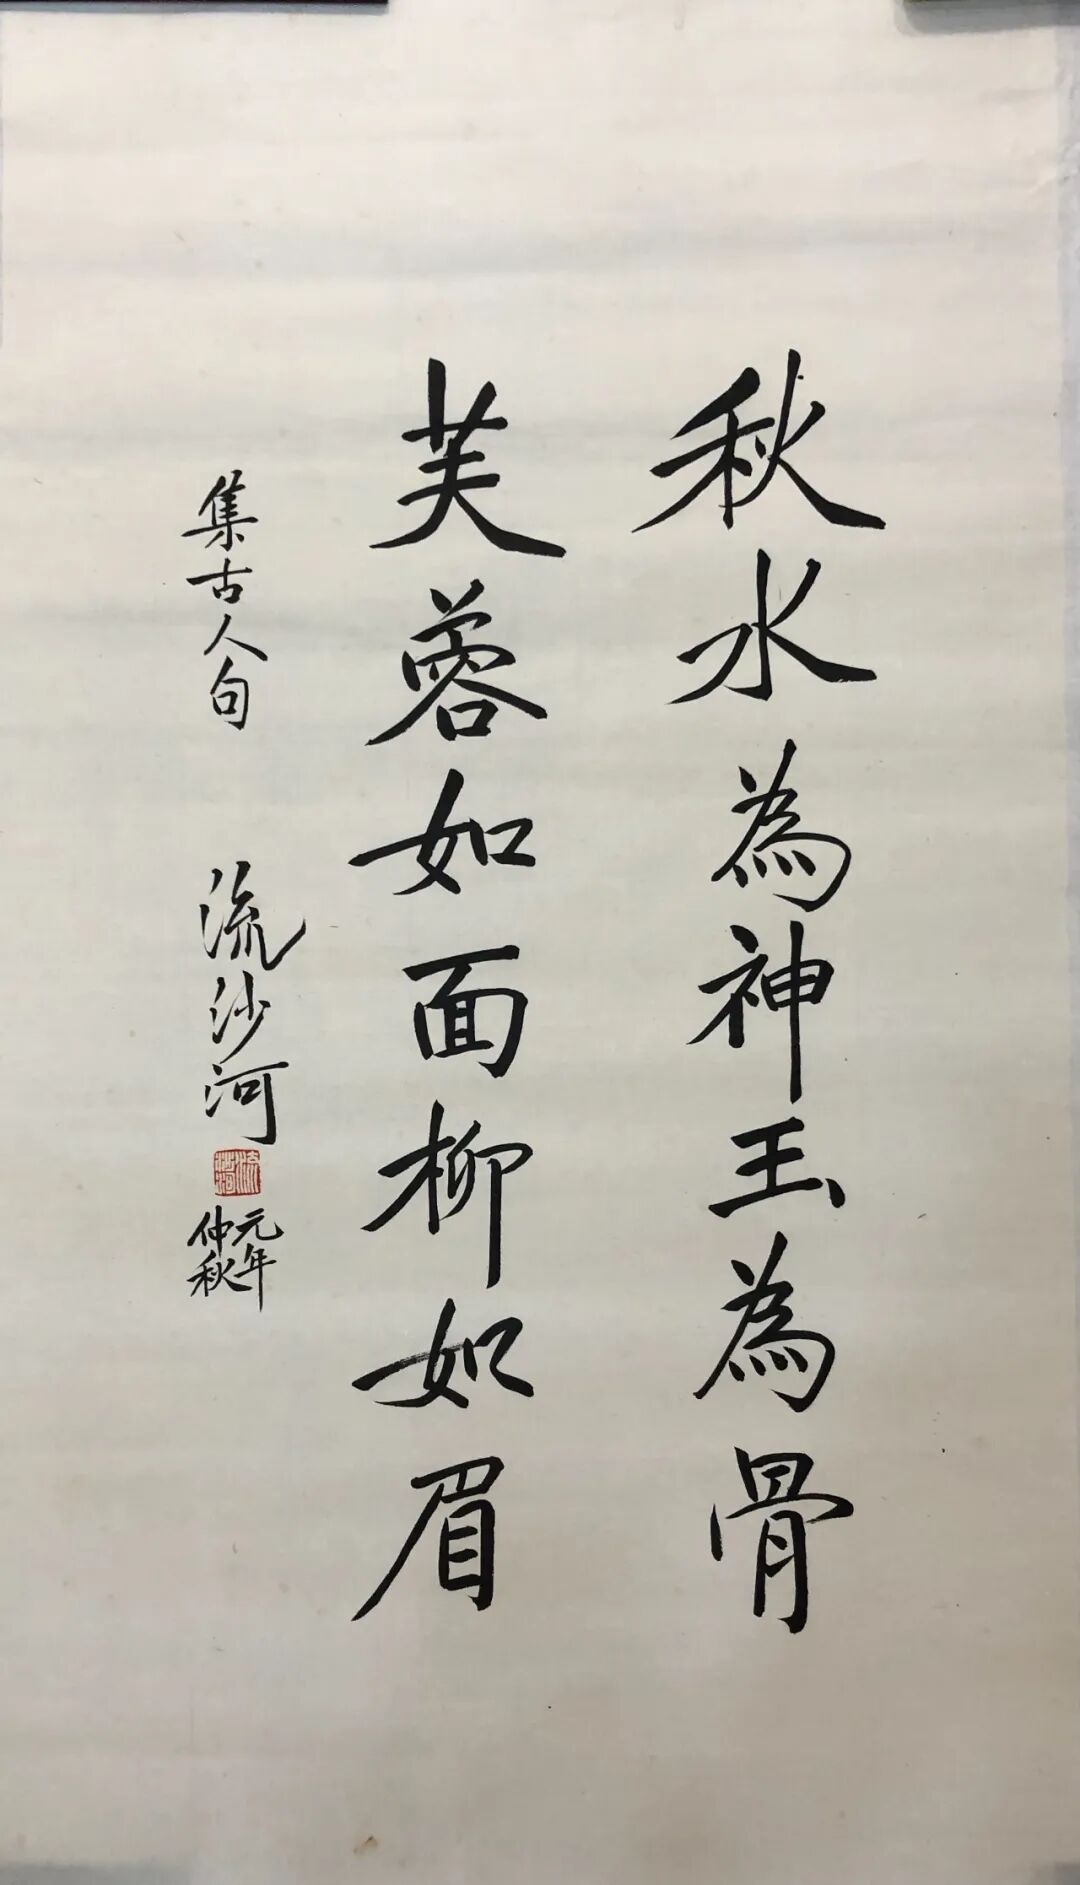 秋水為神玉為骨
芙蓉如面柳如眉
集古人句
流沙河
流沙河
元年
仲秋